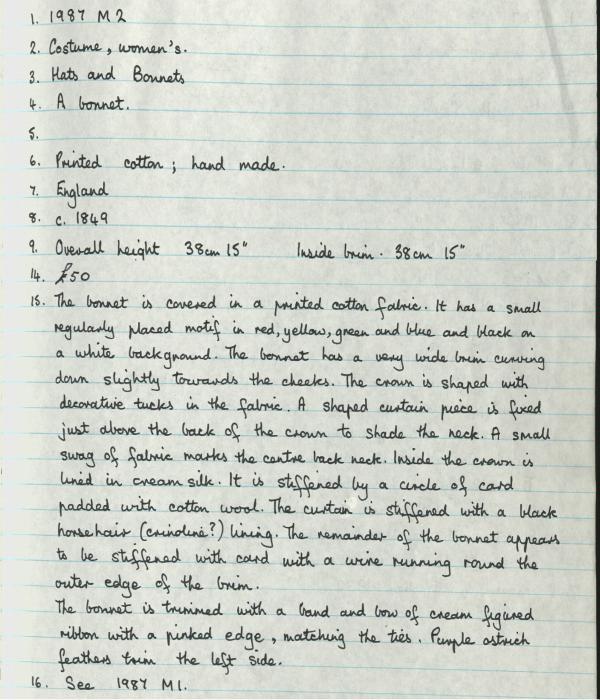 1. 1987 M2
2. Costume, women's.
3. Hats and Bonnets
4. A bonnet.
5.
6. Printed cotton ; hand made.
7. England
8. c. 1849
9. Overall height 38cm 15" Inside brim . 38cm 15"
14. £50
15. The bonnet is covered in a printed cotton fabric. It has a small
regularly placed motif in red, yellow, green and blue and black on
a white background. The bonnet has a very wide brim curving
down slightly towards the cheeks. The crown is shaped with
decorative tucks in the fabric. A shaped curtain piece is fixed
just above the back of the crown to shade the neck. A small
swag of fabric marks the centre back neck. Inside the crown is
lined in cream silk. It is stiffened by a circle of card
padded with cotton wool. The curtain is stiffened with a black
horsehair (crinoline?) lining. The remainder of the bonnet appears
to be stiffened with card with a wire running round the
outer edge of the brim.
The bonnet is trimmed with a band and bow of cream figured
ribbon with a pinked edge, matching the ties. Purple ostrich
feathers trim the left side.
16. See 1987 M1.